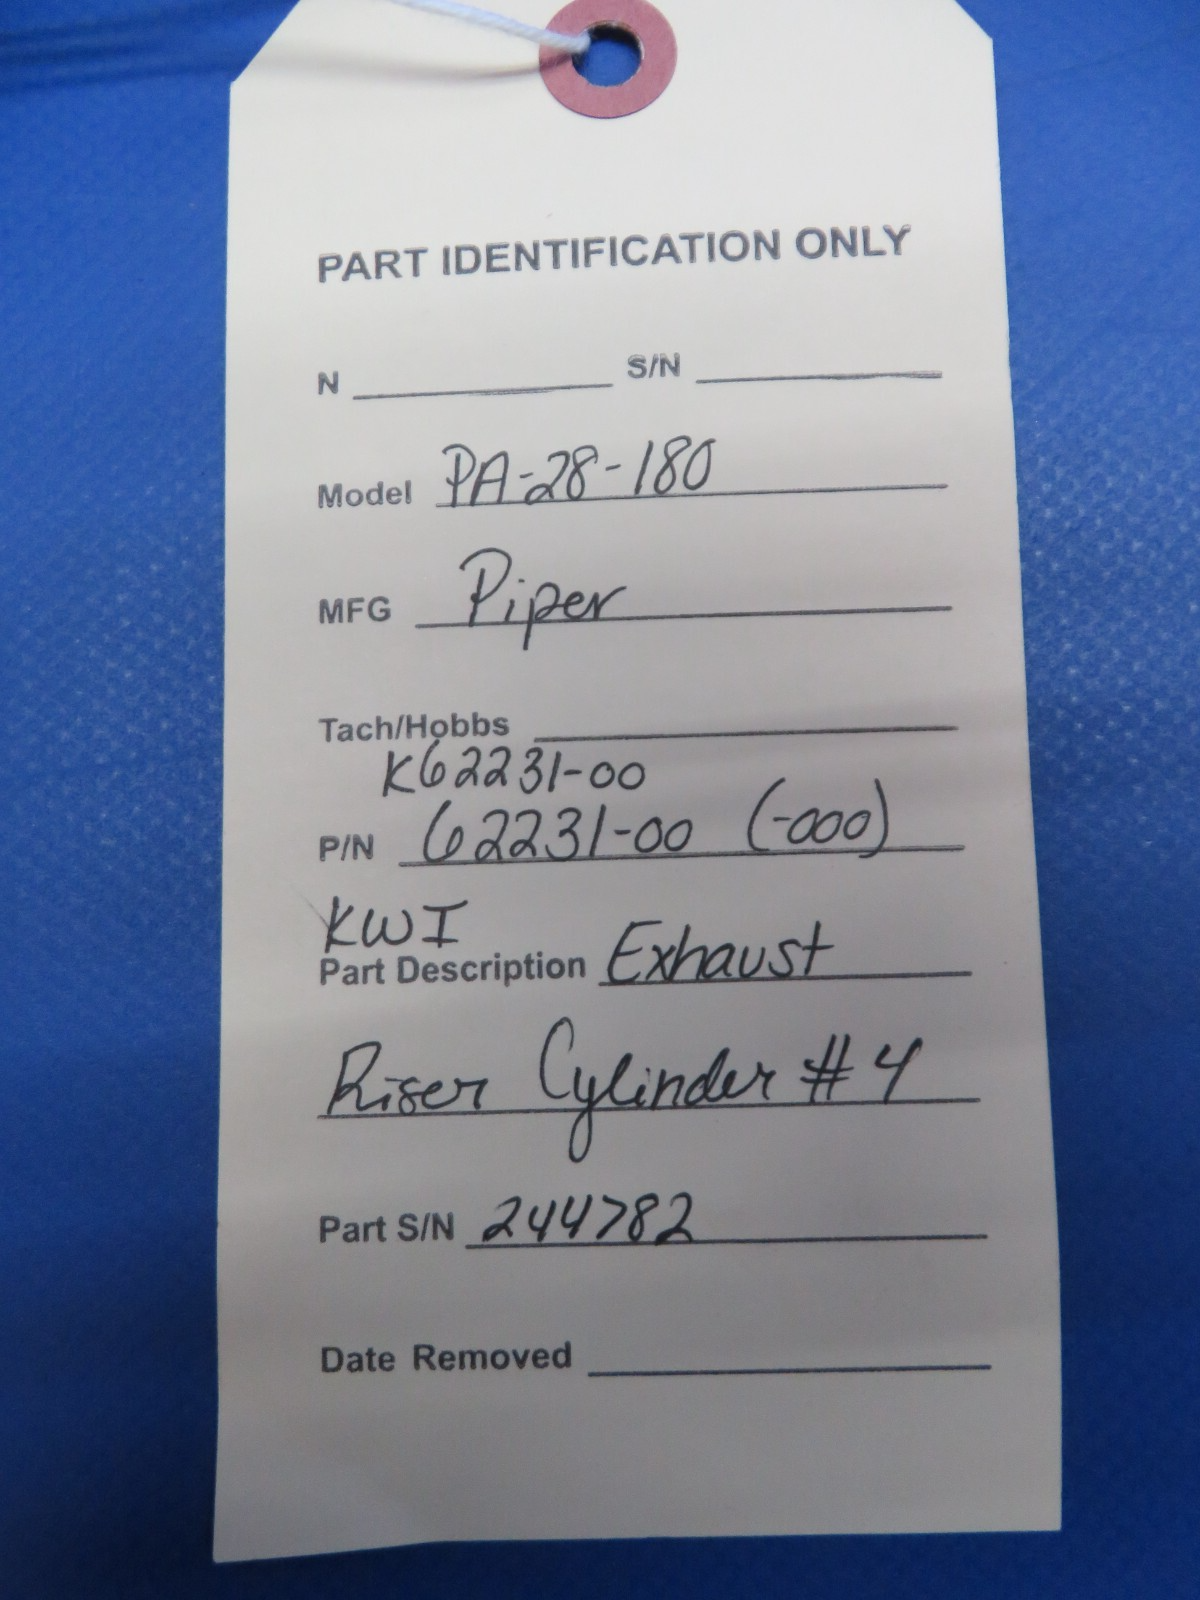 PART IDENTIFICATION ONLY
N S/N
Model PA-28-180
MFG Piper
Tach/Hobbs
K62231-00
P/N 62231-00 (-000)
KWI
Part Description Exhaust
Riser Cylinder #4
Part S/N 244782
Date Removed